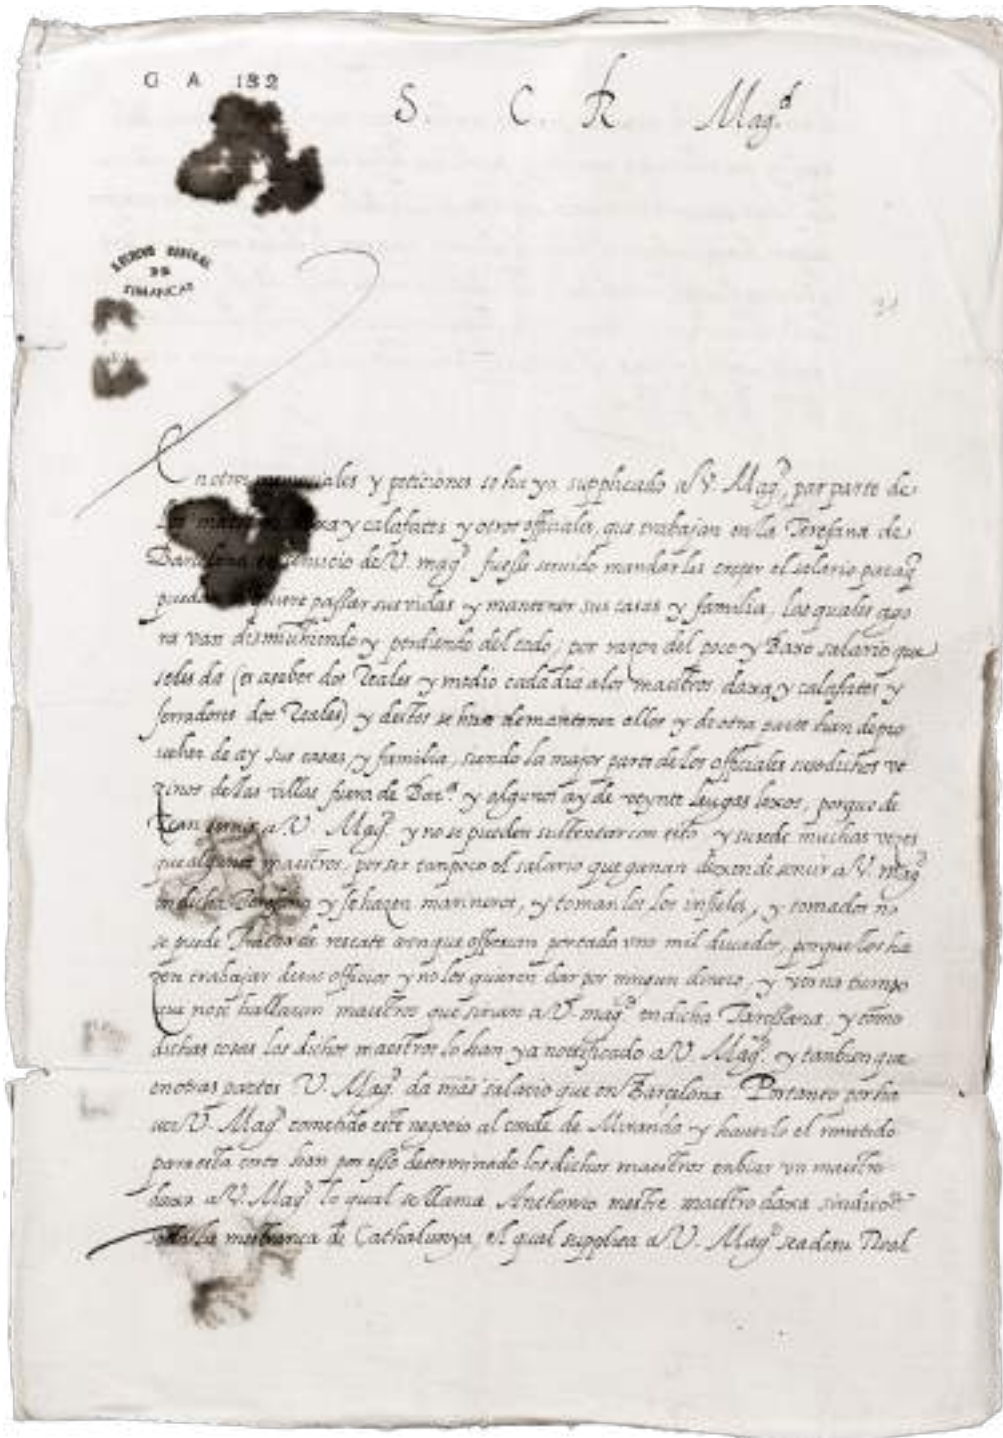 G A 132
S. C. R Mag.d
ARCHIVO GENERAL
DE
SIMANCAS
En otros memoriales y peticiones se ha ya supplicado a V. Mag.d, por parte de
los daxa y calafates y otros officiales, que trabajan en la Teressana de
Barcelona en seruicio de V. mag.d fuesse seruido mandarles creçer el salario paraq
puedan passar sus vidas y mantener sus casas y familia, las quales ago
ra van disminuhiendo y perdiendo del todo, por razon del poco y Baxo salario que
seles da (es asaber dos Reales y medio cadadia alos maestros daxa, y calafates y
serradores dos Reales) y destos se han de mantener ellos y de otra parte han depro
uehir de ay sus casas, y familia, siendo la major parte de los officiales susodichos ve
zinos de las villas fuera de Bar.na y algunos ay de veynte leugas lexos, porque de
sean seruir a V. Mag.d y no se pueden sustentar con esto y susede muchas vezes
que algunos maestros, por ser tanpoco el salario que ganan dexen de seruir a V. mag.d
en dicha Teressana y se hazen marineros, y toman los los infieles, y tomados no
se puede tractar de rescate aonque offrescan por cada vno mil ducados, porque los ha
zen trabajar de sus officios y no los quieren dar por ningun dinero, y verna tiempo
que nose hallaran maestros que siruan a V. mag.d en dicha Taressana, y como
dichas cosas los dichos maestros lo han ya notificado a V. Mag.d y tanbien que
en otras partes V. Mag.d da mas salario que en Barçelona. Portanto por ha
uer V. Mag.d cometido este negocio al conde de Miranda y hauerlo el remetido
para esta corte han por esso determinado los dichos maestros enbiar vn maestro
daxa a V. Mag.d lo qual se llama Anthonio mestre maestro daxa sindico
la mestrança de Cathalunya, el qual supplica a V. Mag.d sea de su Real